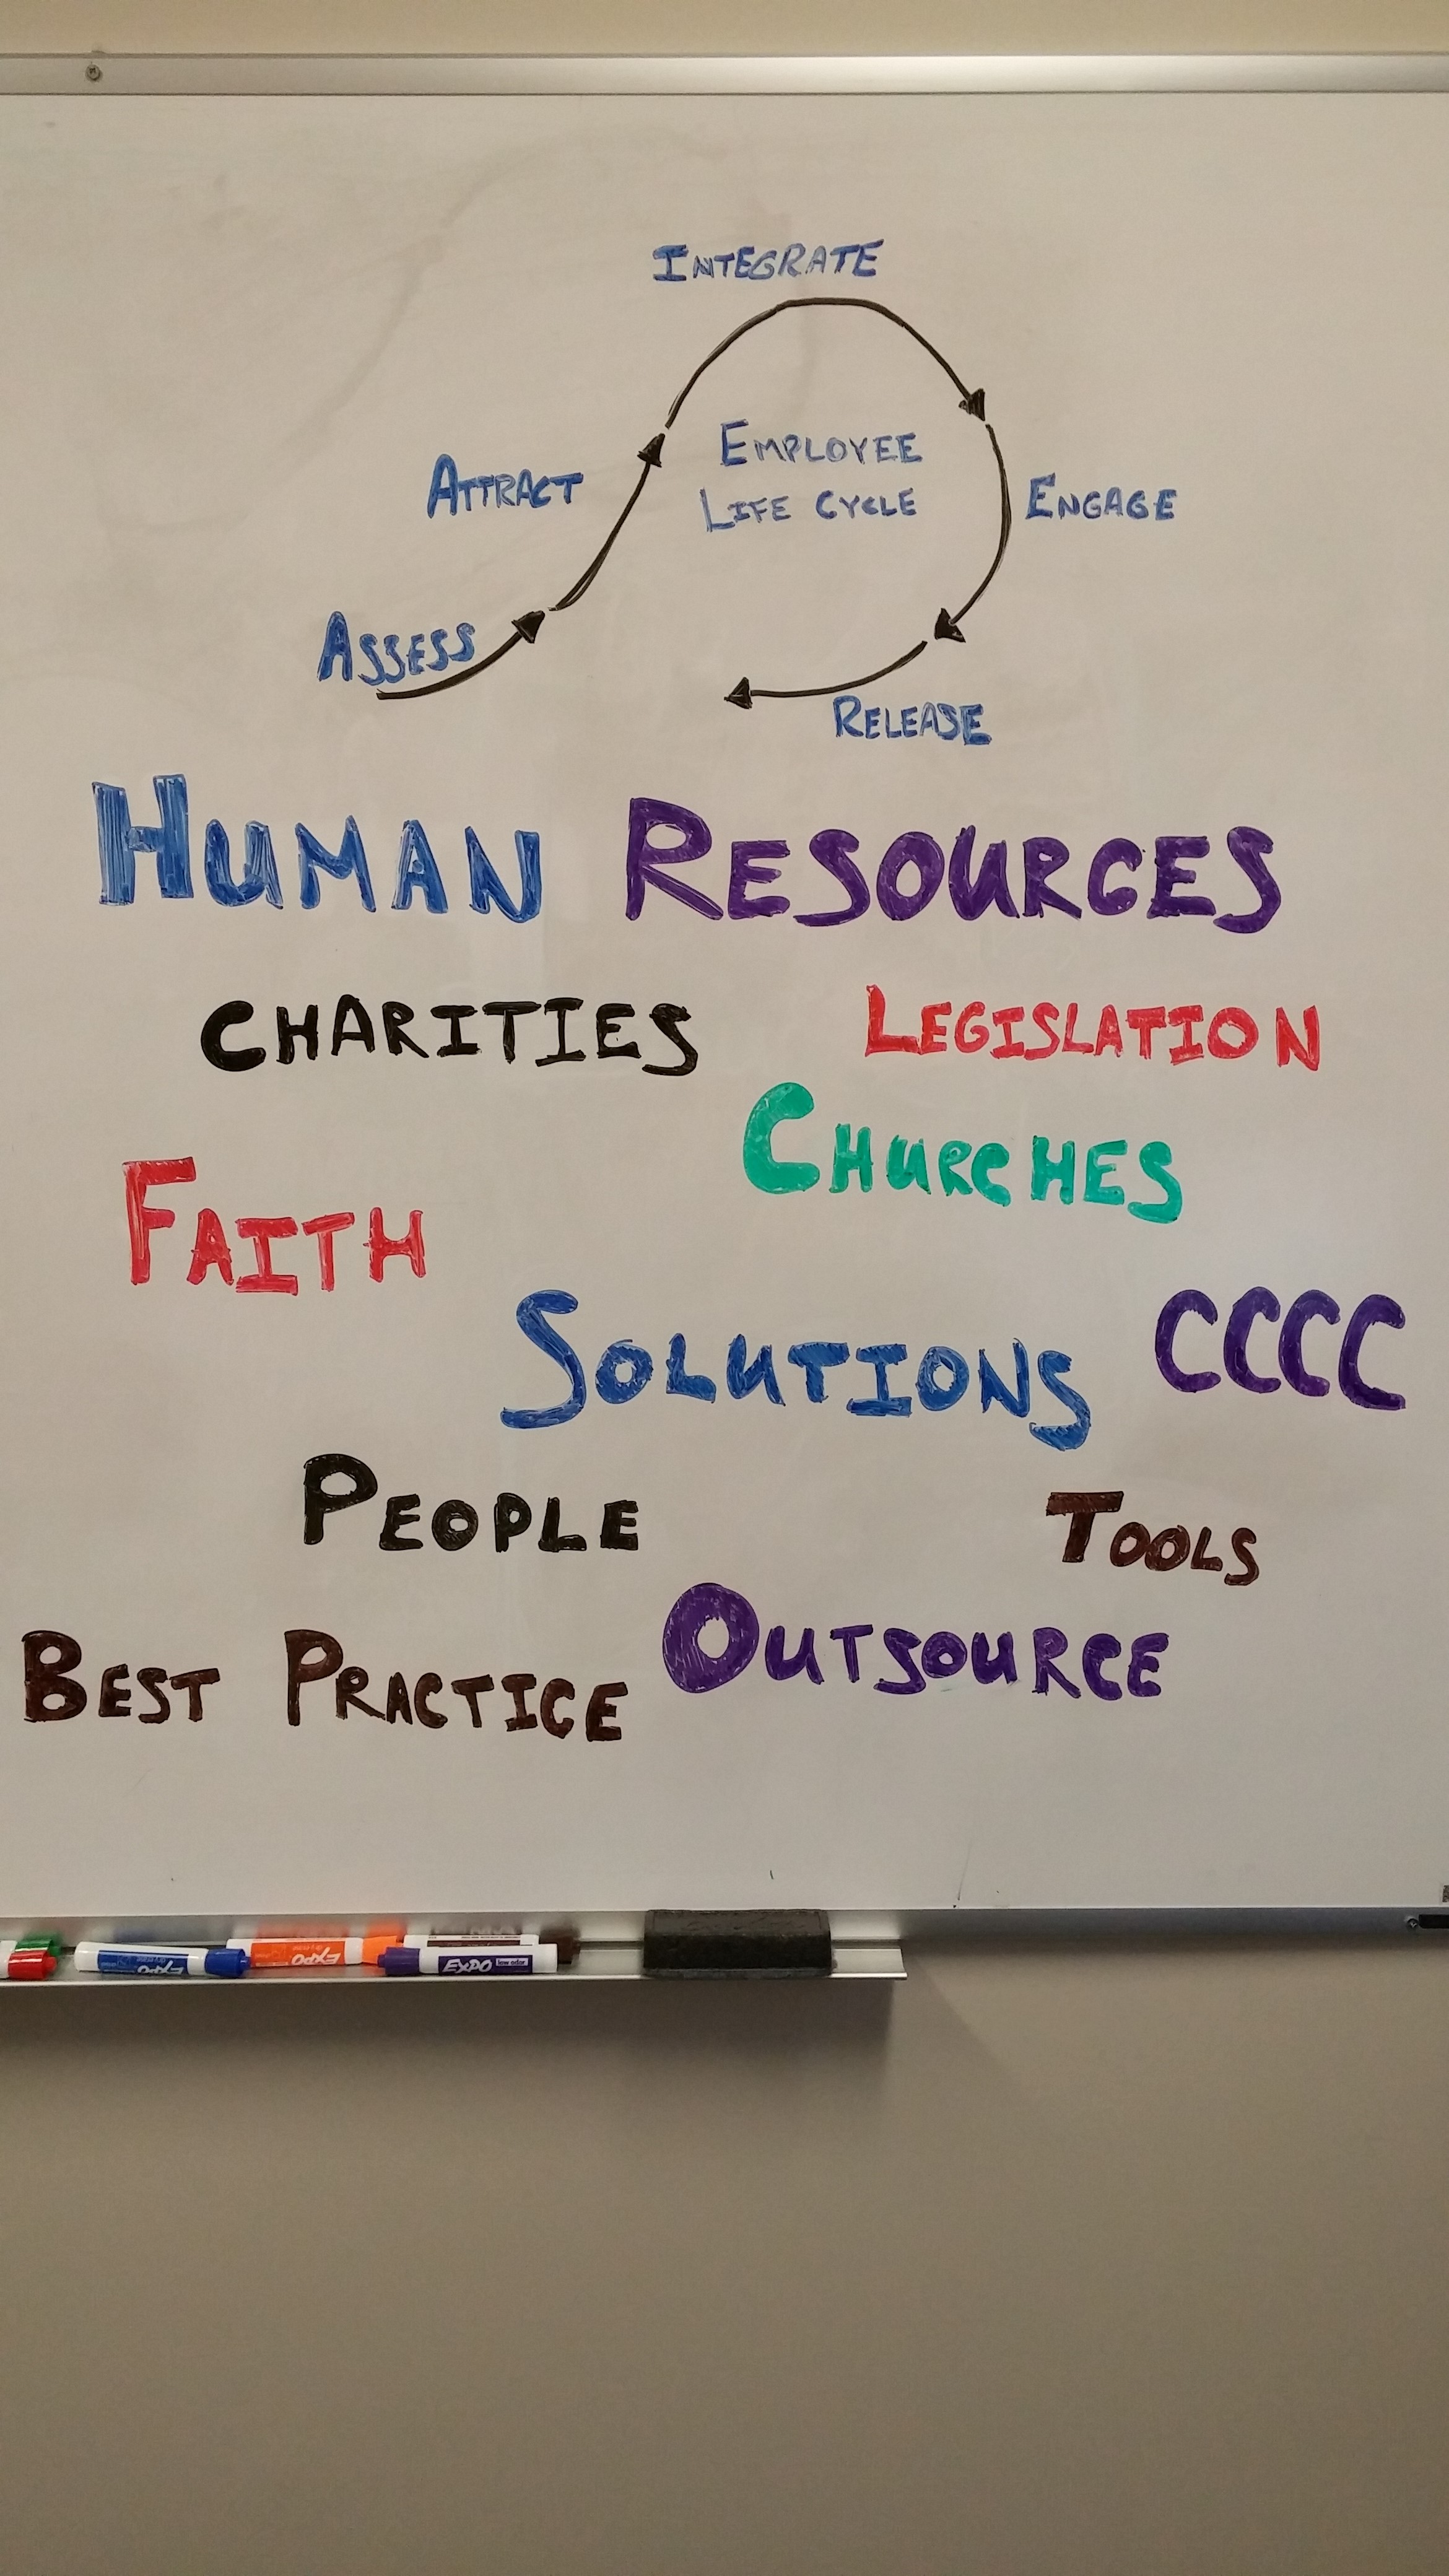 INTEGRATE
EMPLOYEE
LIFE CYCLE
ATTRACT
ENGAGE
ASSESS
RELEASE
HUMAN RESOURCES
CHARITIES
LEGISLATION
CHURCHES
FAITH
SOLUTIONS
CCCC
PEOPLE
TOOLS
OUTSOURCE
BEST PRACTICE
EXPO
EXPO
EXPO low odor